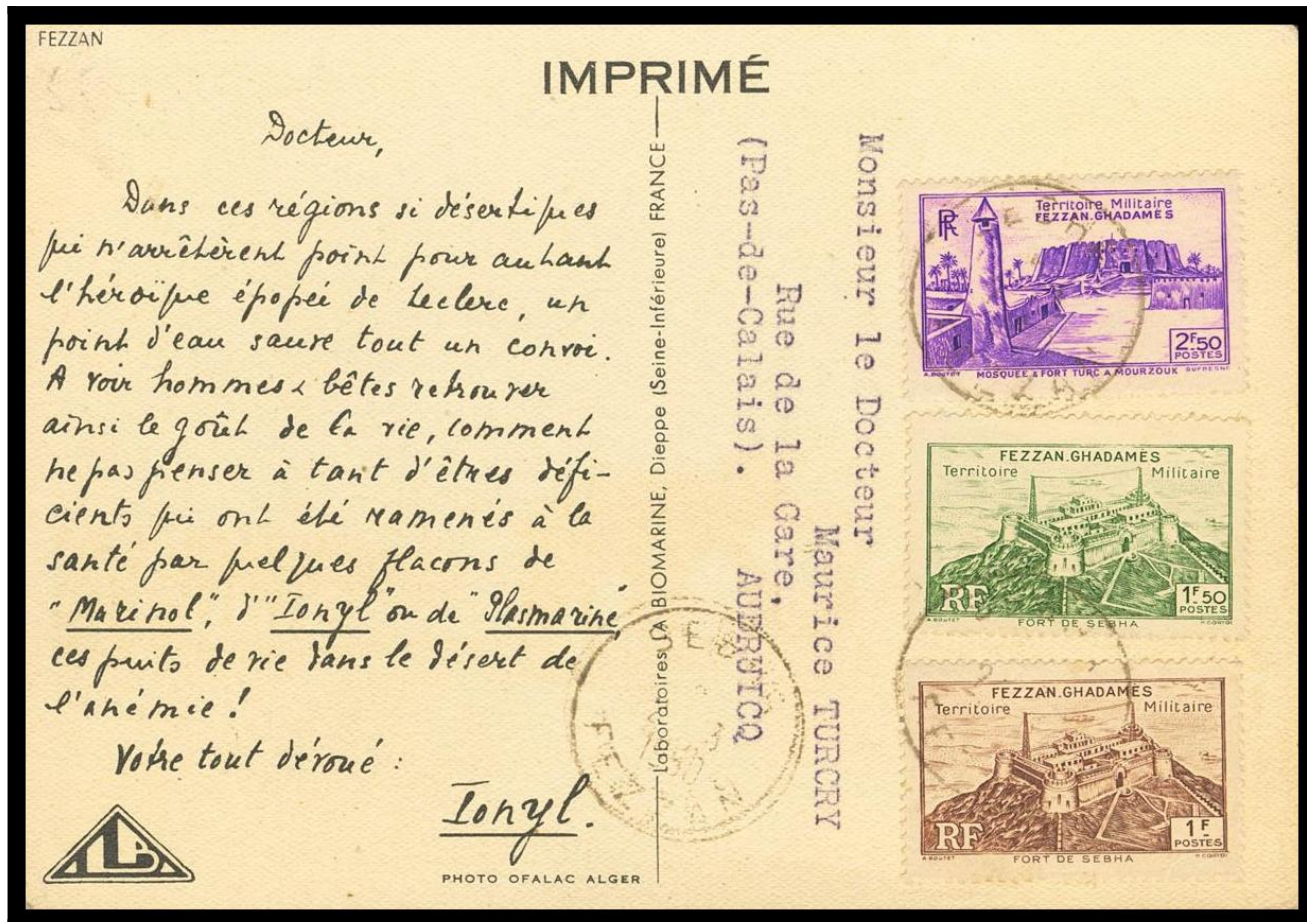 FEZZAN
IMPRIMÉ
Docteur,
Dans ces régions si désertiques
qui n'arrêtèrent point pour autant
l'héroïque épopée de Leclerc, un
point d'eau sauve tout un convoi.
A voir hommes & bêtes retrouver
ainsi le goût de la vie, comment
ne pas penser à tant d'êtres défi-
cients qui ont été ramenés à la
santé par quelques flacons de
"Marinol", d'"Ionyl" ou de "Plasmarine",
ces puits de vie dans le désert de
l'anémie !
Votre tout dévoué :
Ionyl.
PHOTO OFALAC ALGER
Laboratoires LA BIOMARINE, Dieppe (Seine-Inférieure) FRANCE
Monsieur le Docteur
Maurice TURCRY
Rue de la Gare,
(Pas-de-Calais). AUDRUICQ
Territoire Militaire
FEZZAN.GHADAMÈS
RF
2F50
POSTES
MOSQUÉE & FORT TURC A MOURZOUK
A.BOUTET DUFRESNE
FEZZAN.GHADAMÈS
Territoire Militaire
RF
1F50
POSTES
FORT DE SEBHA
A.BOUTET
FEZZAN.GHADAMÈS
Territoire Militaire
RF
1F
POSTES
FORT DE SEBHA
A.BOUTET
FEZZAN